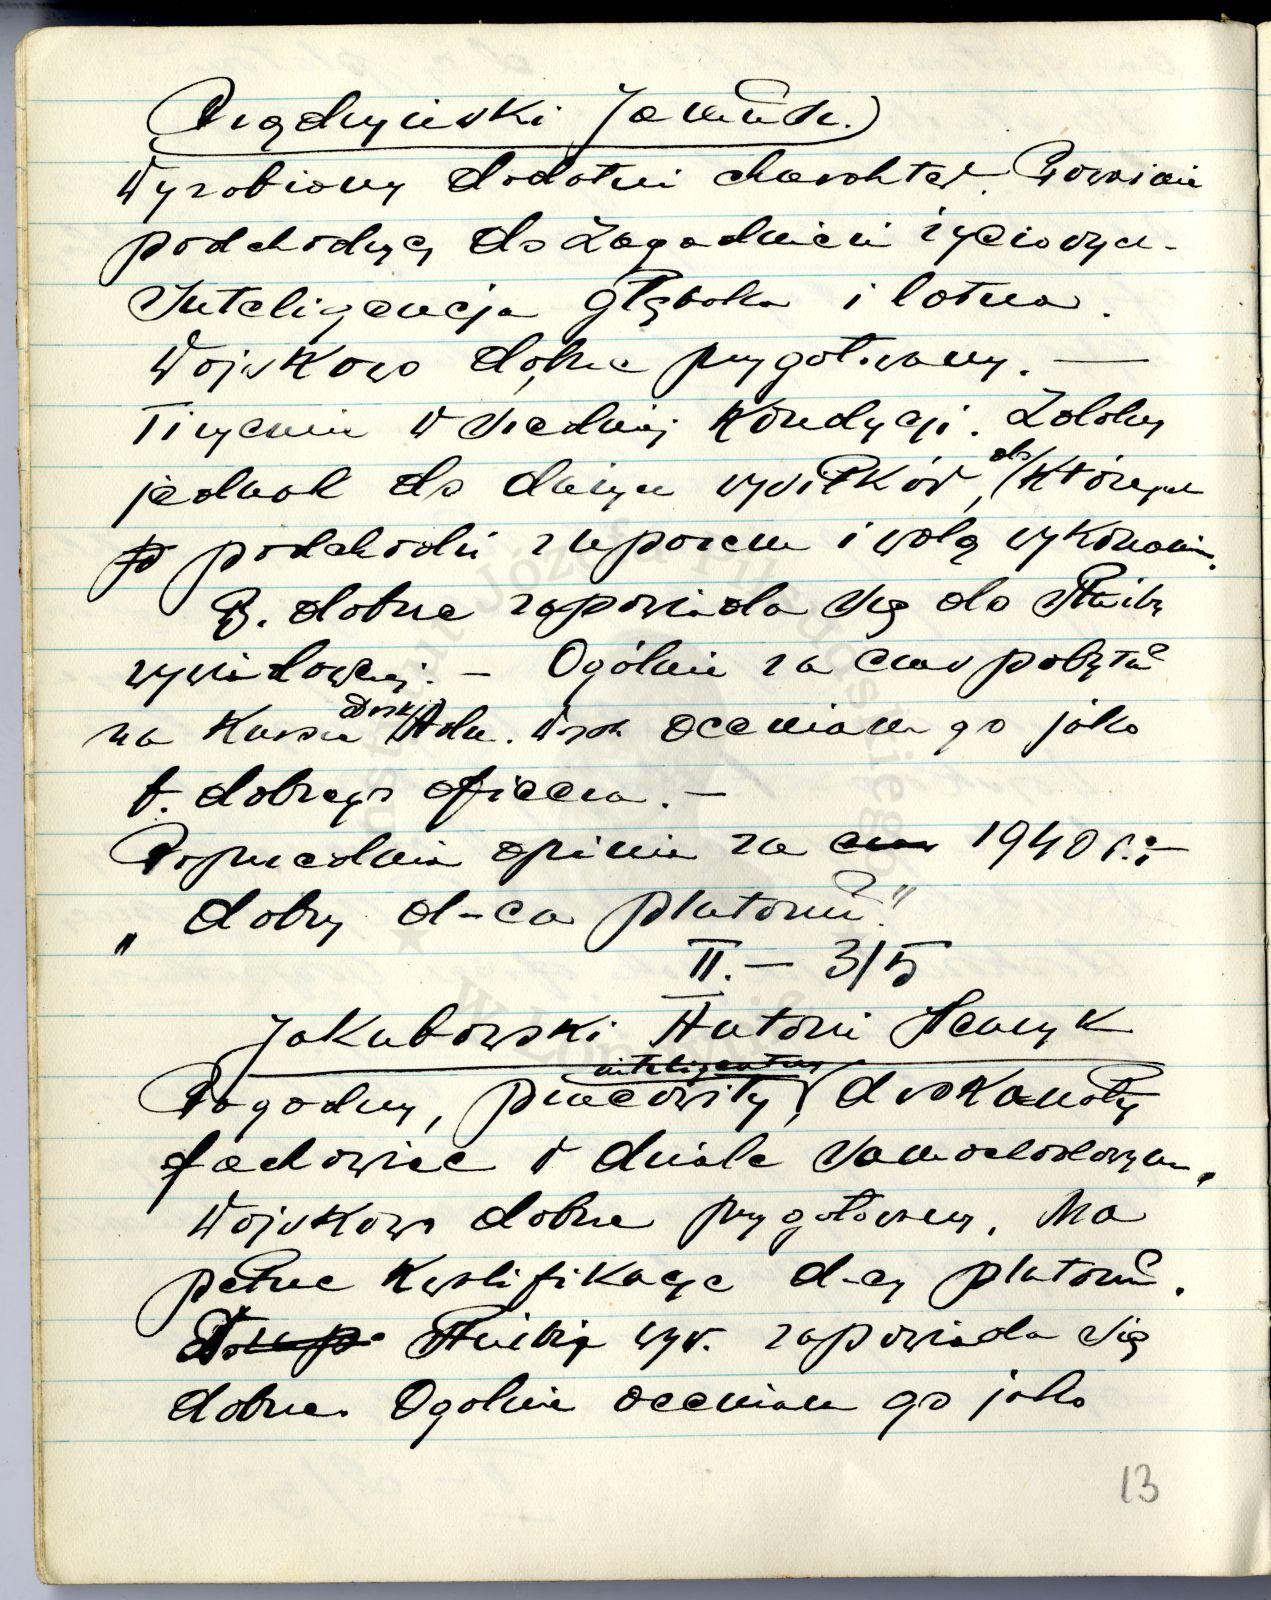 Prądzyński Janusz.
Wyrobiony dodatni charakter. Poważnie
podchodzący do zagadnień życiowych.
Inteligencja głęboka i lotna.
Wojskowo dobrze przygotowany. —
Fizycznie w średniej kondycji. Zdolny
jednak do dużych wysiłków, do których
p podchodzi z uporem i wolą wykonania.
B. dobrze zapowiada się do służby
wywiadowczej. — Ogólnie za czas pobytu
na kursie Dosk. Adm. Wojsk oceniam go jako
b. dobrego oficera. —
Poprzednia opinia za czas 1940 r.: —
„dobry d-ca plutonu."
II. — 3/5
Jakubowski Antoni Henryk
Pogodny, pracowity, inteligentny, doskonały
fachowiec w dziale samochodowym.
Wojskowo dobrze przygotowany. Ma
pełne kwalifikacje d-cy plutonu.
Służbie wyw. zapowiada się
dobrze. Ogólnie oceniam go jako
13
Instytut Józefa Piłsudskiego
w Londynie